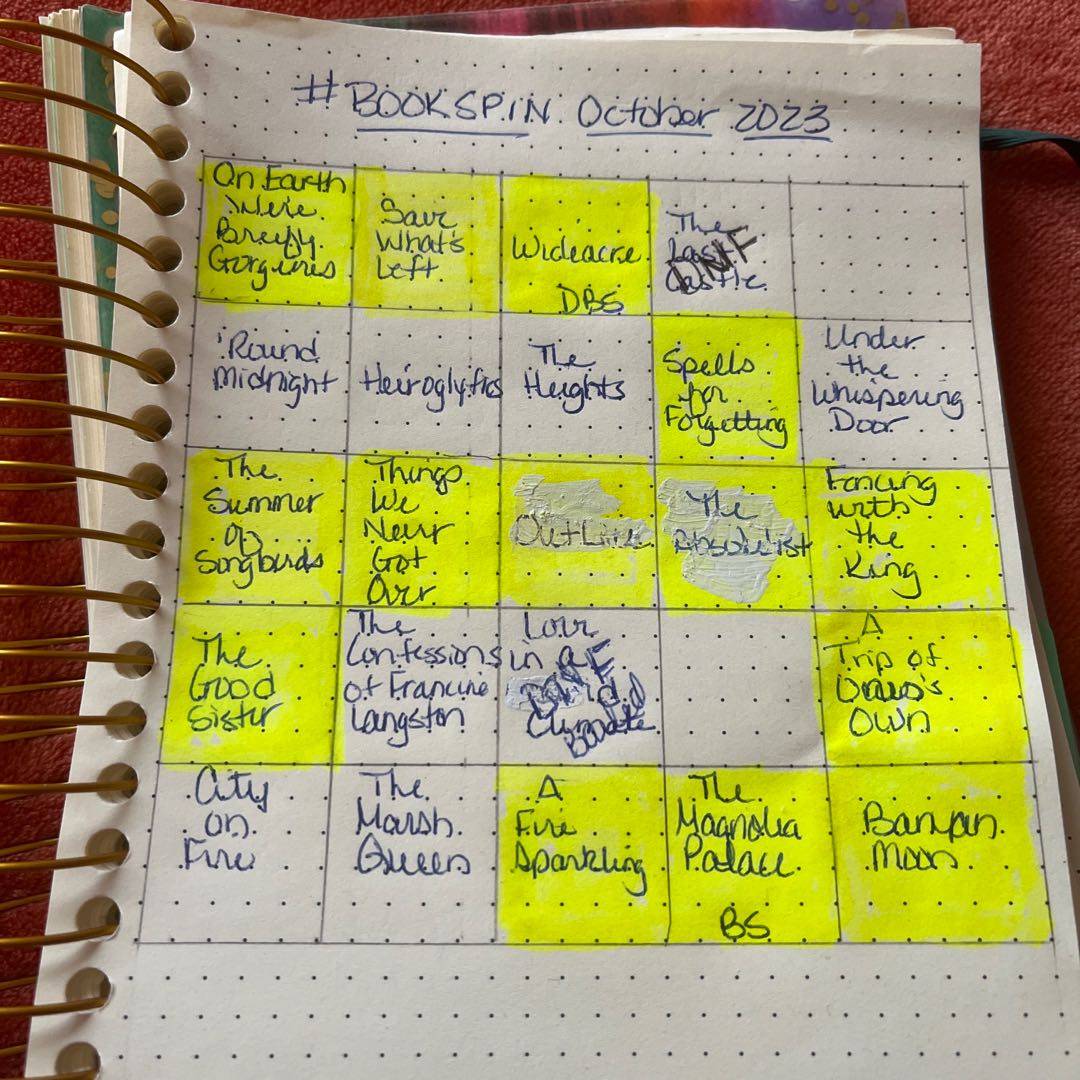 #BOOKSPIN October 2023
On Earth
We're
Briefly
Gorgeous
Save
What's
Left
Wideacre
DBS
The
Last
Castle
DNF
'Round
Midnight
Heiroglyfics
The
Heights
Spells
for
Forgetting
Under
the
Whispering
Door
The
Summer
of
Songbirds
Things
We
Never
Got
Over
OutLine
The
Absolutist
Fencing
with
the
King
The
Good
Sister
The
Confessions
of Francine
Langston
Love
in a
Climate
A
Trip of
One's
Own
City
on
Fire
The
Marsh
Queen
A
Fire
Sparkling
The
Magnolia
Palace
BS
Banyan
Moon